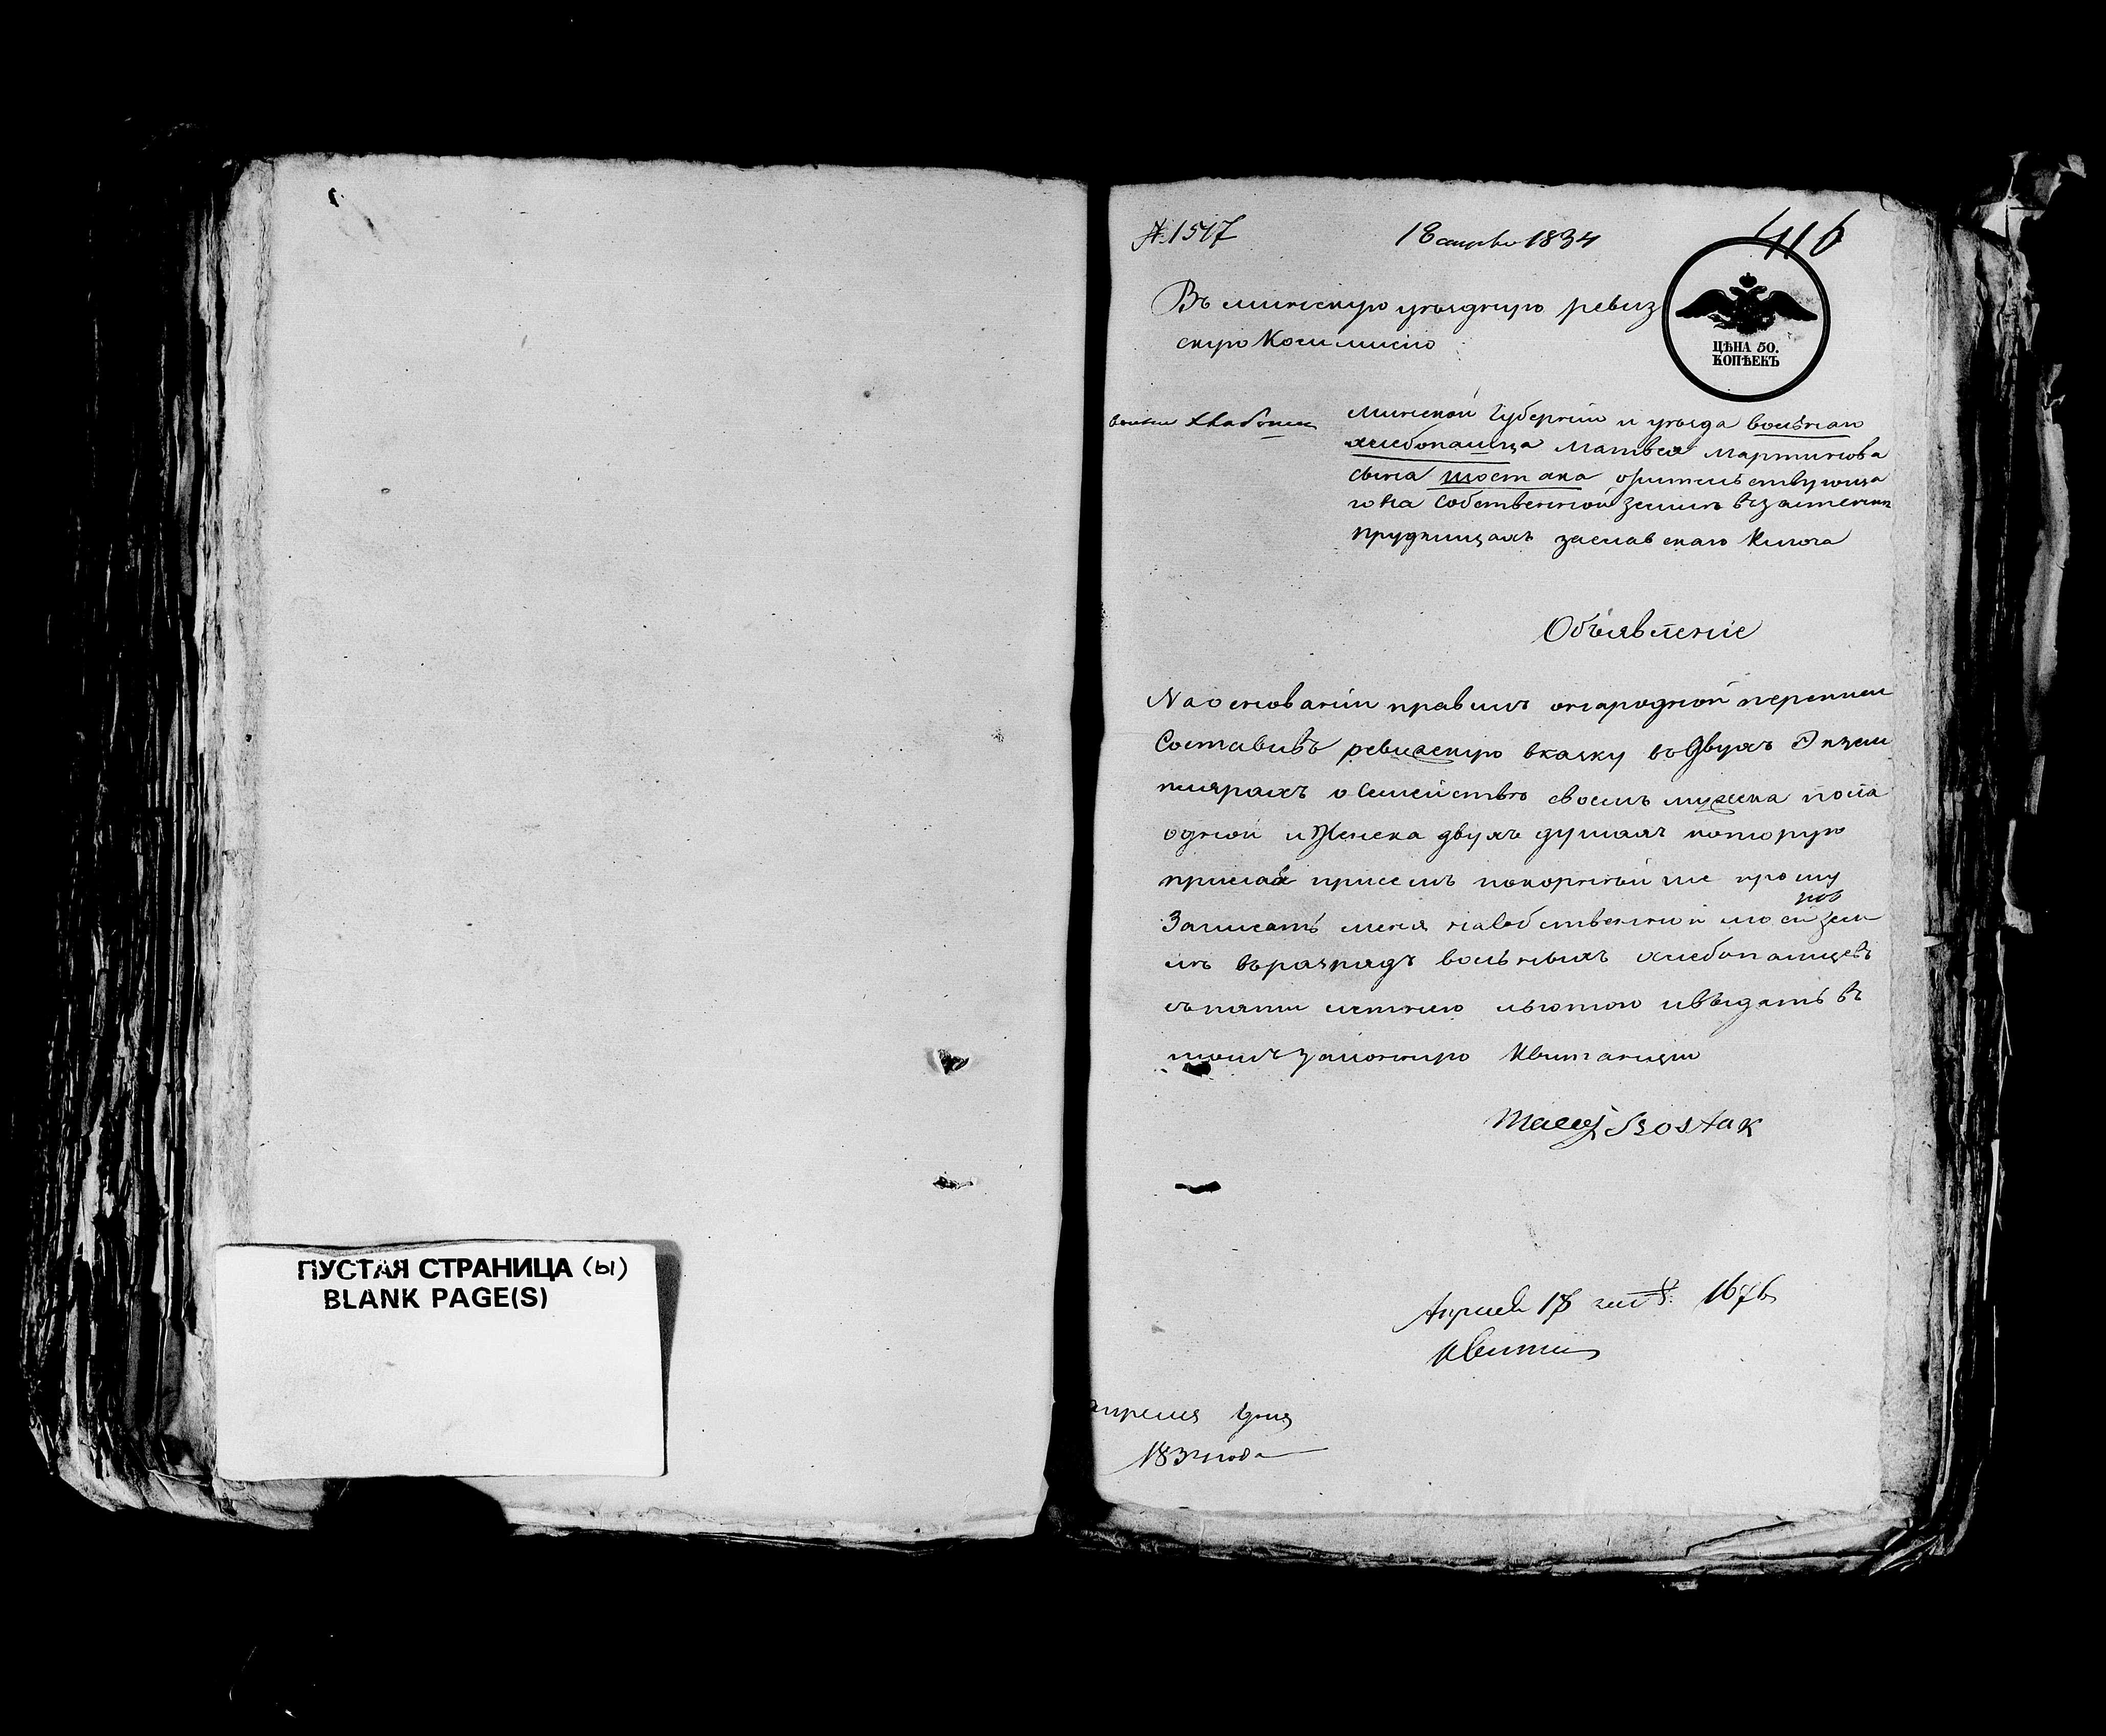 ПУСТАЯ СТРАНИЦА (ы)
BLANK PAGE(S)
№ 1517
18 апрѣля 1834
416
Въ минскую уѣздную ревиз
скую Коммисію
ЦѢНА 50.
КОПѢЕКЪ
Минской Губерніи и уѣзда вольнаго
хлебопашца Матвея Мартинова
сына Шостака жительствующа
го на собственной земли въ застенки
прудищахъ заславскаго Ключа
Объявленіе
На основаніи правилъ о народной переписи
Составивъ ревизскую скаску въ двухъ Экзем
плярахъ о Семействѣ своемъ мужска пола
одной и Женска двухъ душахъ которую
при семъ покорнейше прошу
Записать меня на собственной моей зем
лѣ въ разрядъ вольныхъ хлебопашцевъ
съ пяти летнею льготою и выдать въ
томъ законную Квитанцію
Maciej Szostak
Апрѣля 18 1676
апреля дня
1834 года